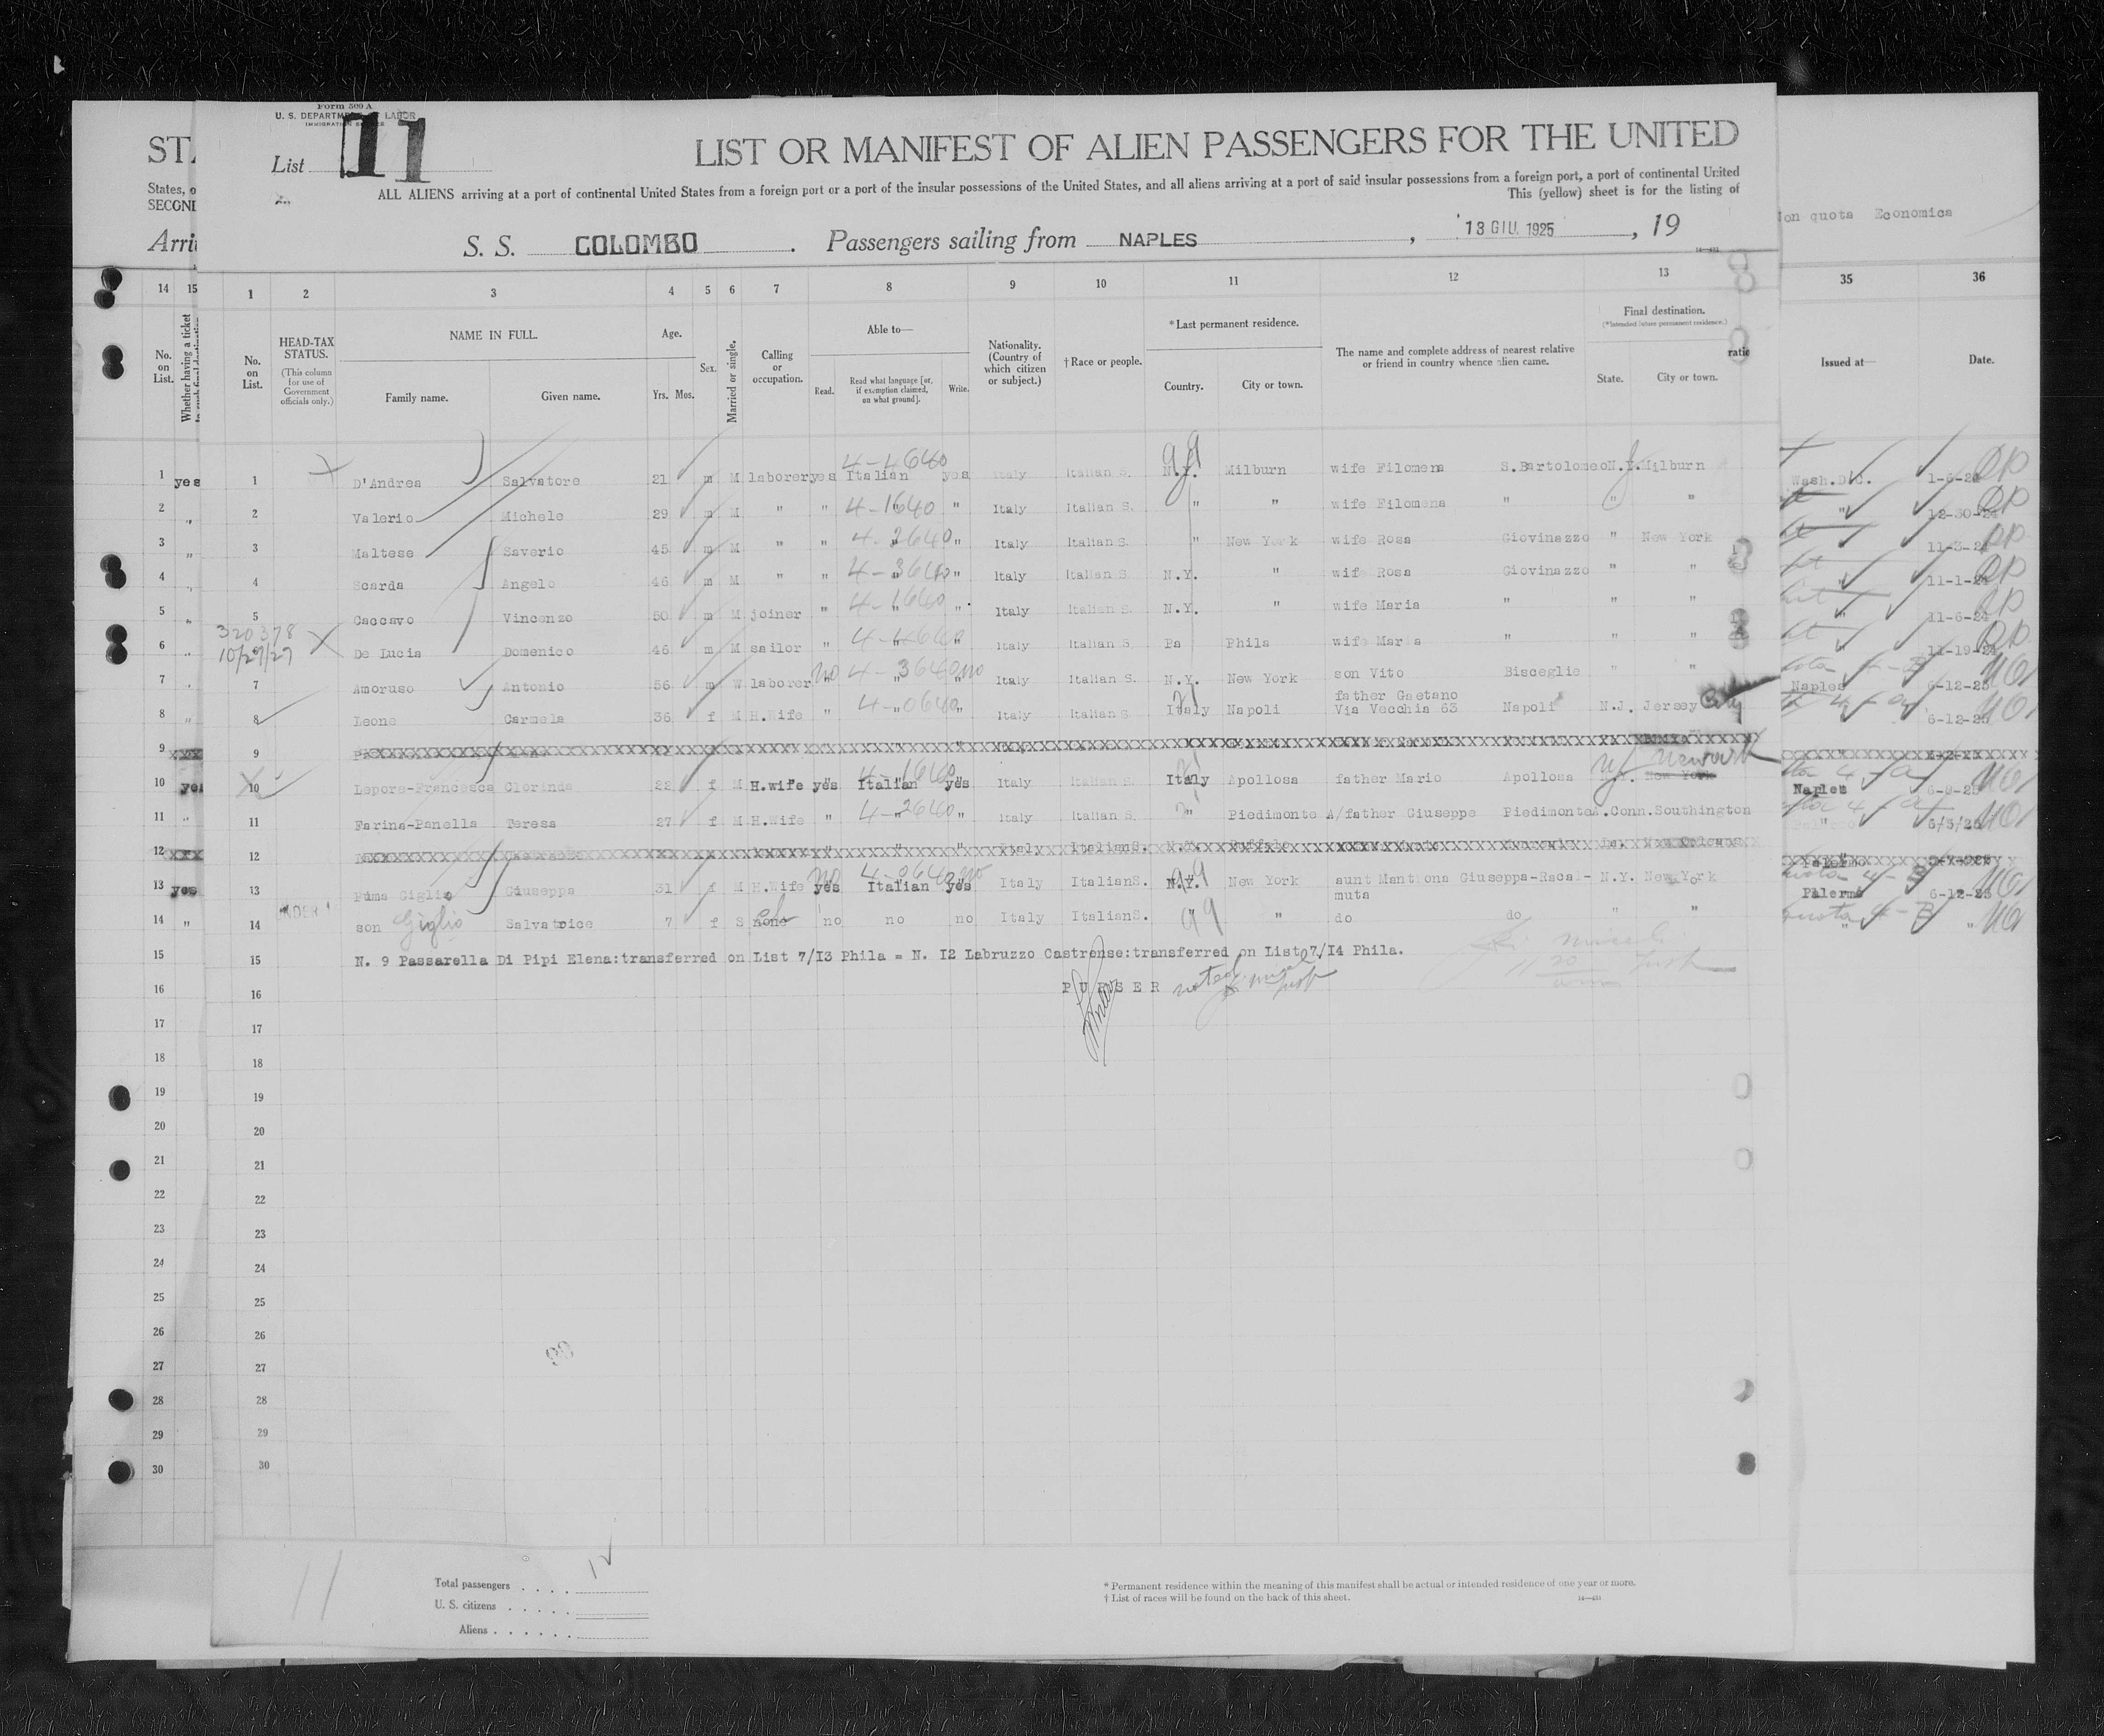 Form 500 A
U. S. DEPARTMENT OF LABOR
IMMIGRATION SERVICE
List 11
LIST OR MANIFEST OF ALIEN PASSENGERS FOR THE UNITED
ALL ALIENS arriving at a port of continental United States from a foreign port or a port of the insular possessions of the United States, and all aliens arriving at a port of said insular possessions from a foreign port, a port of continental United
This (yellow) sheet is for the listing of
STA
States, o
SECOND
Arri
S. S. COLOMBO . Passengers sailing from NAPLES , 13 GIU. 1925 , 19
Non quota Economica
14 15 1 2 3 4 5 6 7 8 9 10 11 12 13 35 36
No. on List. Whether having a ticket
No. on List.
HEAD-TAX STATUS. (This column for use of Government officials only.)
NAME IN FULL. Family name. Given name.
Age. Yrs. Mos.
Sex.
Married or single.
Calling or occupation.
Able to— Read. Read what language [or, if exemption claimed, on what ground]. Write.
Nationality. (Country of which citizen or subject.)
†Race or people.
*Last permanent residence. Country. City or town.
The name and complete address of nearest relative or friend in country whence alien came.
Final destination. (*Intended future permanent residence.) State. City or town.
ratic
Issued at— Date.
1 yes 1 D'Andrea Salvatore 21 m M laborer yes Italian 4-4640 yes Italy Italian S. N.Y. Milburn wife Filomena S.Bartolomeo N.Y. Milburn Wash.D.C.
2 " 2 Valerio Michele 29 m M " " 4-1640 " Italy Italian S. " " wife Filomena " " " 12-30-24
3 " 3 Maltese Saverio 45 m M " " 4-2640 " Italy Italian S. " New York wife Rosa Giovinazzo " New York 11-3-24
4 " 4 Scarda Angelo 46 m M " " 4-3640 " Italy Italian S. N.Y. " wife Rosa Giovinazzo " " 11-1-24
5 " 5 Caccavo Vincenzo 50 m M joiner " 4-1640 " Italy Italian S. N.Y. " wife Maria " " " 11-6-24
320378
10/27/27
6 " 6 De Lucia Domenico 46 m M sailor " 4-4640 " Italy Italian S. Pa Phila wife Maria " " " 11-19-24
7 " 7 Amoruso Antonio 56 m W laborer no 4-3640 no Italy Italian S. N.Y. New York son Vito Bisceglie " " Naples 6-12-25
8 " 8 Leone Carmela 36 f M H.Wife " 4-0640 " Italy Italian S. Italy Napoli father Gaetano Via Vecchia 63 Napoli N.J. Jersey City 6-12-25
9 xxx 9
10 yes 10 Lepore-Francesca Clorinda 22 f M H.wife yes Italian 4-1640 yes Italy Italian S. Italy Apollosa father Mario Apollosa N.Y. New York Newark Naples 6-9-25
11 " 11 Farina-Panella Teresa 27 f M H.Wife " 4-2640 " Italy Italian S. " Piedimonte A/father Giuseppe Piedimonte A. Conn. Southington 6/5/25
12 xxx 12
13 yes 13 Puma Giglio Giuseppa 31 f M H.Wife yes no Italian 4-0640 yes no Italy Italian S. N.Y. New York aunt Mantiona Giuseppa-Racal-muta N.Y. New York Palermo 6-12-25
UNDER
14 " 14 son Giglio Salvatrice 7 f S none no no no Italy Italian S. " " do do " " " "
15 15 N. 9 Passarella Di Pipi Elena:transferred on List 7/I3 Phila = N. I2 Labruzzo Castrense:transferred on List 7/I4 Phila.
16 16 PURSER noted
17 17
18 18
19 19
20 20
21 21
22 22
23 23
24 24
25 25
26 26
27 27
28 28
29 29
30 30
11
Total passengers . . . . 12
U. S. citizens . . . . .
Aliens . . . . . .
* Permanent residence within the meaning of this manifest shall be actual or intended residence of one year or more.
† List of races will be found on the back of this sheet.